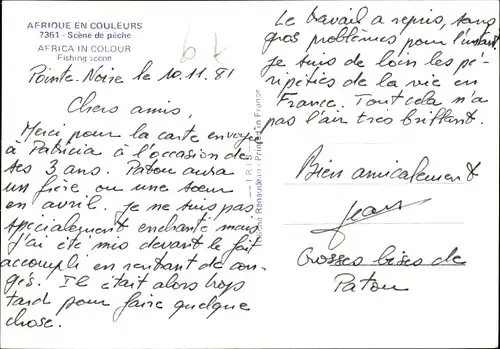 AFRIQUE EN COULEURS
7361 - Scène de pêche
AFRICA IN COLOUR
Fishing scene
Pointe-Noire le 10.11.81
Chers amis,
Merci pour la carte envoyé
à Patricia à l'occasion de
ses 3 ans. Patou aura
un frère ou une sœur
en avril. Je ne suis pas
spécialement enchanté mais
j'ai été mis devant le fait
accompli en rentrant de con-
gés. Il était alors trop
tard pour faire quelque
chose.
IRIS
Printed in France
Le travail a repris, sans
gros problèmes pour l'instant.
Je suis de loin les pé-
ripéties de la vie en
France. Tout cela n'a
pas l'air très brillant.
Bien amicalement
Jean
Grosses bises de
Patou